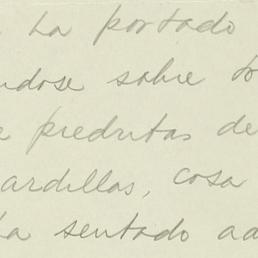 . La portado
ndose sobre to
e piedritas de
ardillas, cosa
ha sentado ad